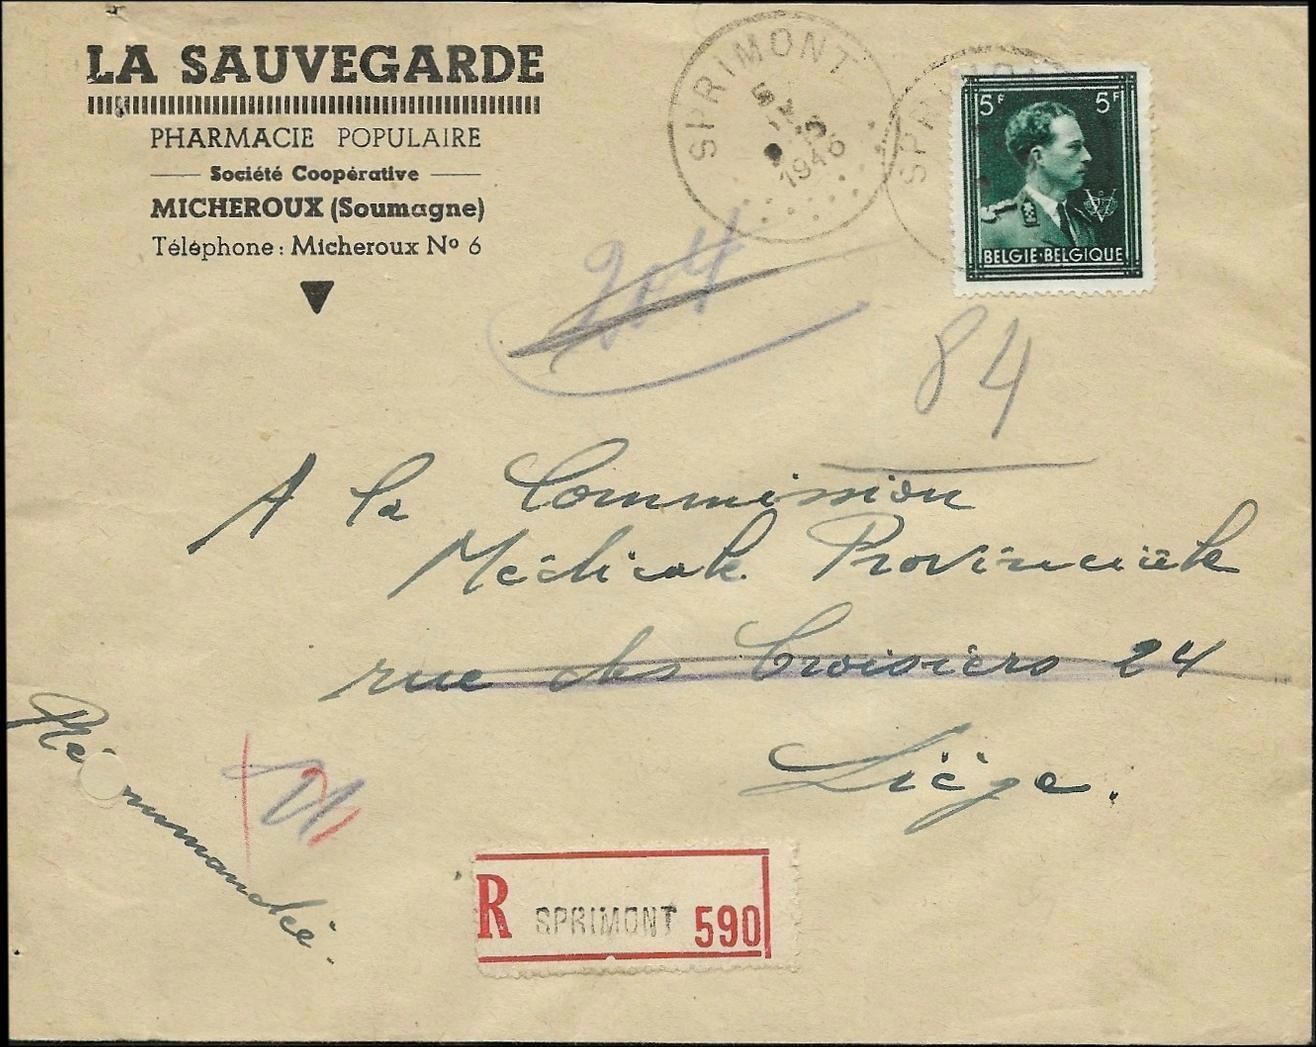 LA SAUVEGARDE
PHARMACIE POPULAIRE
Société Coopérative
MICHEROUX (Soumagne)
Téléphone: Micheroux Nº 6
SPRIMONT
1946
SPRIMONT
5F 5F
BELGIE-BELGIQUE
204
84
A la Commission
Médicale Provinciale
rue des Croisiers 24
Liège.
Recommandé
R SPRIMONT 590